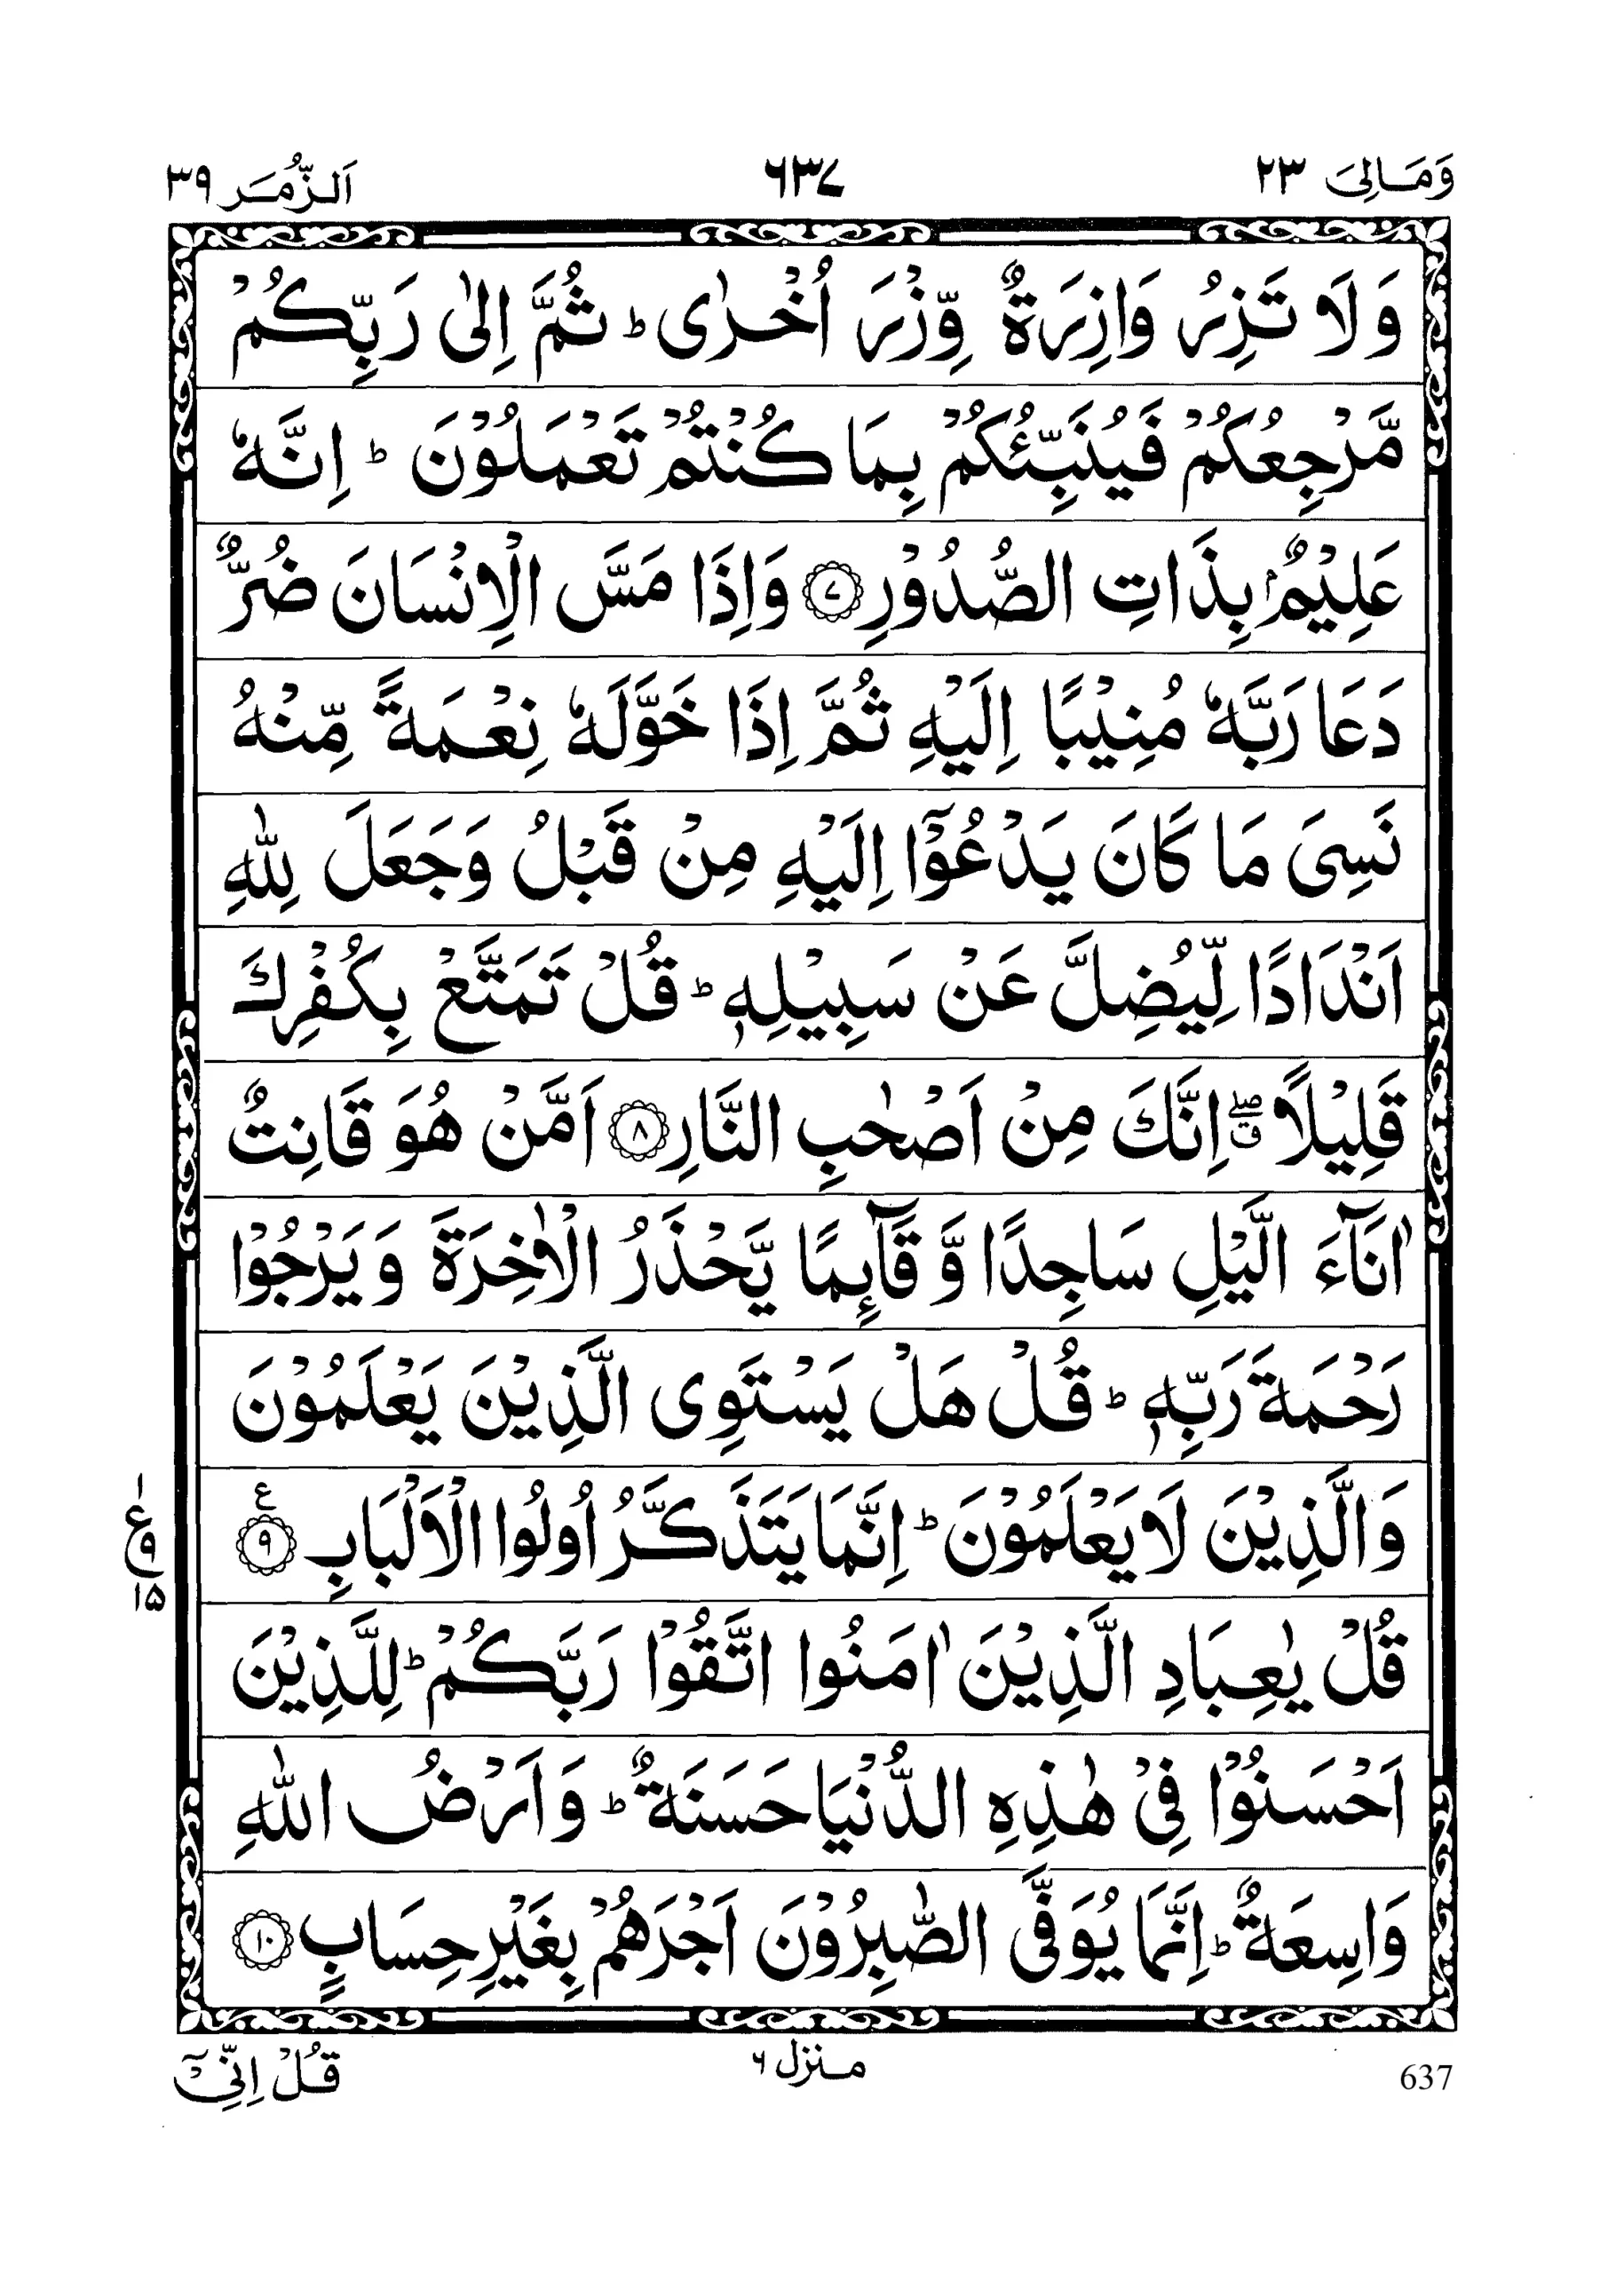 وَمَالِیَ ۲۳ ۶۳۷ اَلزُّمَر ۳۹
وَلَا تَزِرُ وَازِرَةٌ وِّزْرَ اُخْرٰی ؕ ثُمَّ اِلٰی رَبِّكُمْ
مَّرْجِعُكُمْ فَیُنَبِّئُكُمْ بِمَا كُنْتُمْ تَعْمَلُوْنَ ؕ اِنَّهٗ
عَلِیْمٌۢ بِذَاتِ الصُّدُوْرِ ﴿۷﴾ وَاِذَا مَسَّ الْاِنْسَانَ ضُرٌّ
دَعَا رَبَّهٗ مُنِیْبًا اِلَیْهِ ثُمَّ اِذَا خَوَّلَهٗ نِعْمَةً مِّنْهُ
نَسِیَ مَا كَانَ یَدْعُوْۤا اِلَیْهِ مِنْ قَبْلُ وَجَعَلَ لِلّٰهِ
اَنْدَادًا لِّیُضِلَّ عَنْ سَبِیْلِهٖ ؕ قُلْ تَمَتَّعْ بِكُفْرِكَ
قَلِیْلًا ۖۗ اِنَّكَ مِنْ اَصْحٰبِ النَّارِ ﴿۸﴾ اَمَّنْ هُوَ قَانِتٌ
اٰنَآءَ الَّیْلِ سَاجِدًا وَّ قَآىِٕمًا یَّحْذَرُ الْاٰخِرَةَ وَیَرْجُوْا
رَحْمَةَ رَبِّهٖ ؕ قُلْ هَلْ یَسْتَوِی الَّذِیْنَ یَعْلَمُوْنَ
وَالَّذِیْنَ لَا یَعْلَمُوْنَ ؕ اِنَّمَا یَتَذَكَّرُ اُولُوا الْاَلْبَابِ ﴿۹﴾ ع
ع ۱ ۹ ۱۵
قُلْ یٰعِبَادِ الَّذِیْنَ اٰمَنُوا اتَّقُوْا رَبَّكُمْ ؕ لِلَّذِیْنَ
اَحْسَنُوْا فِیْ هٰذِهِ الدُّنْیَا حَسَنَةٌ ؕ وَاَرْضُ اللّٰهِ
وَاسِعَةٌ ؕ اِنَّمَا یُوَفَّی الصّٰبِرُوْنَ اَجْرَهُمْ بِغَیْرِ حِسَابٍ ﴿۱۰﴾
637 منزل ۶ قُلْ اِنِّیْۤ